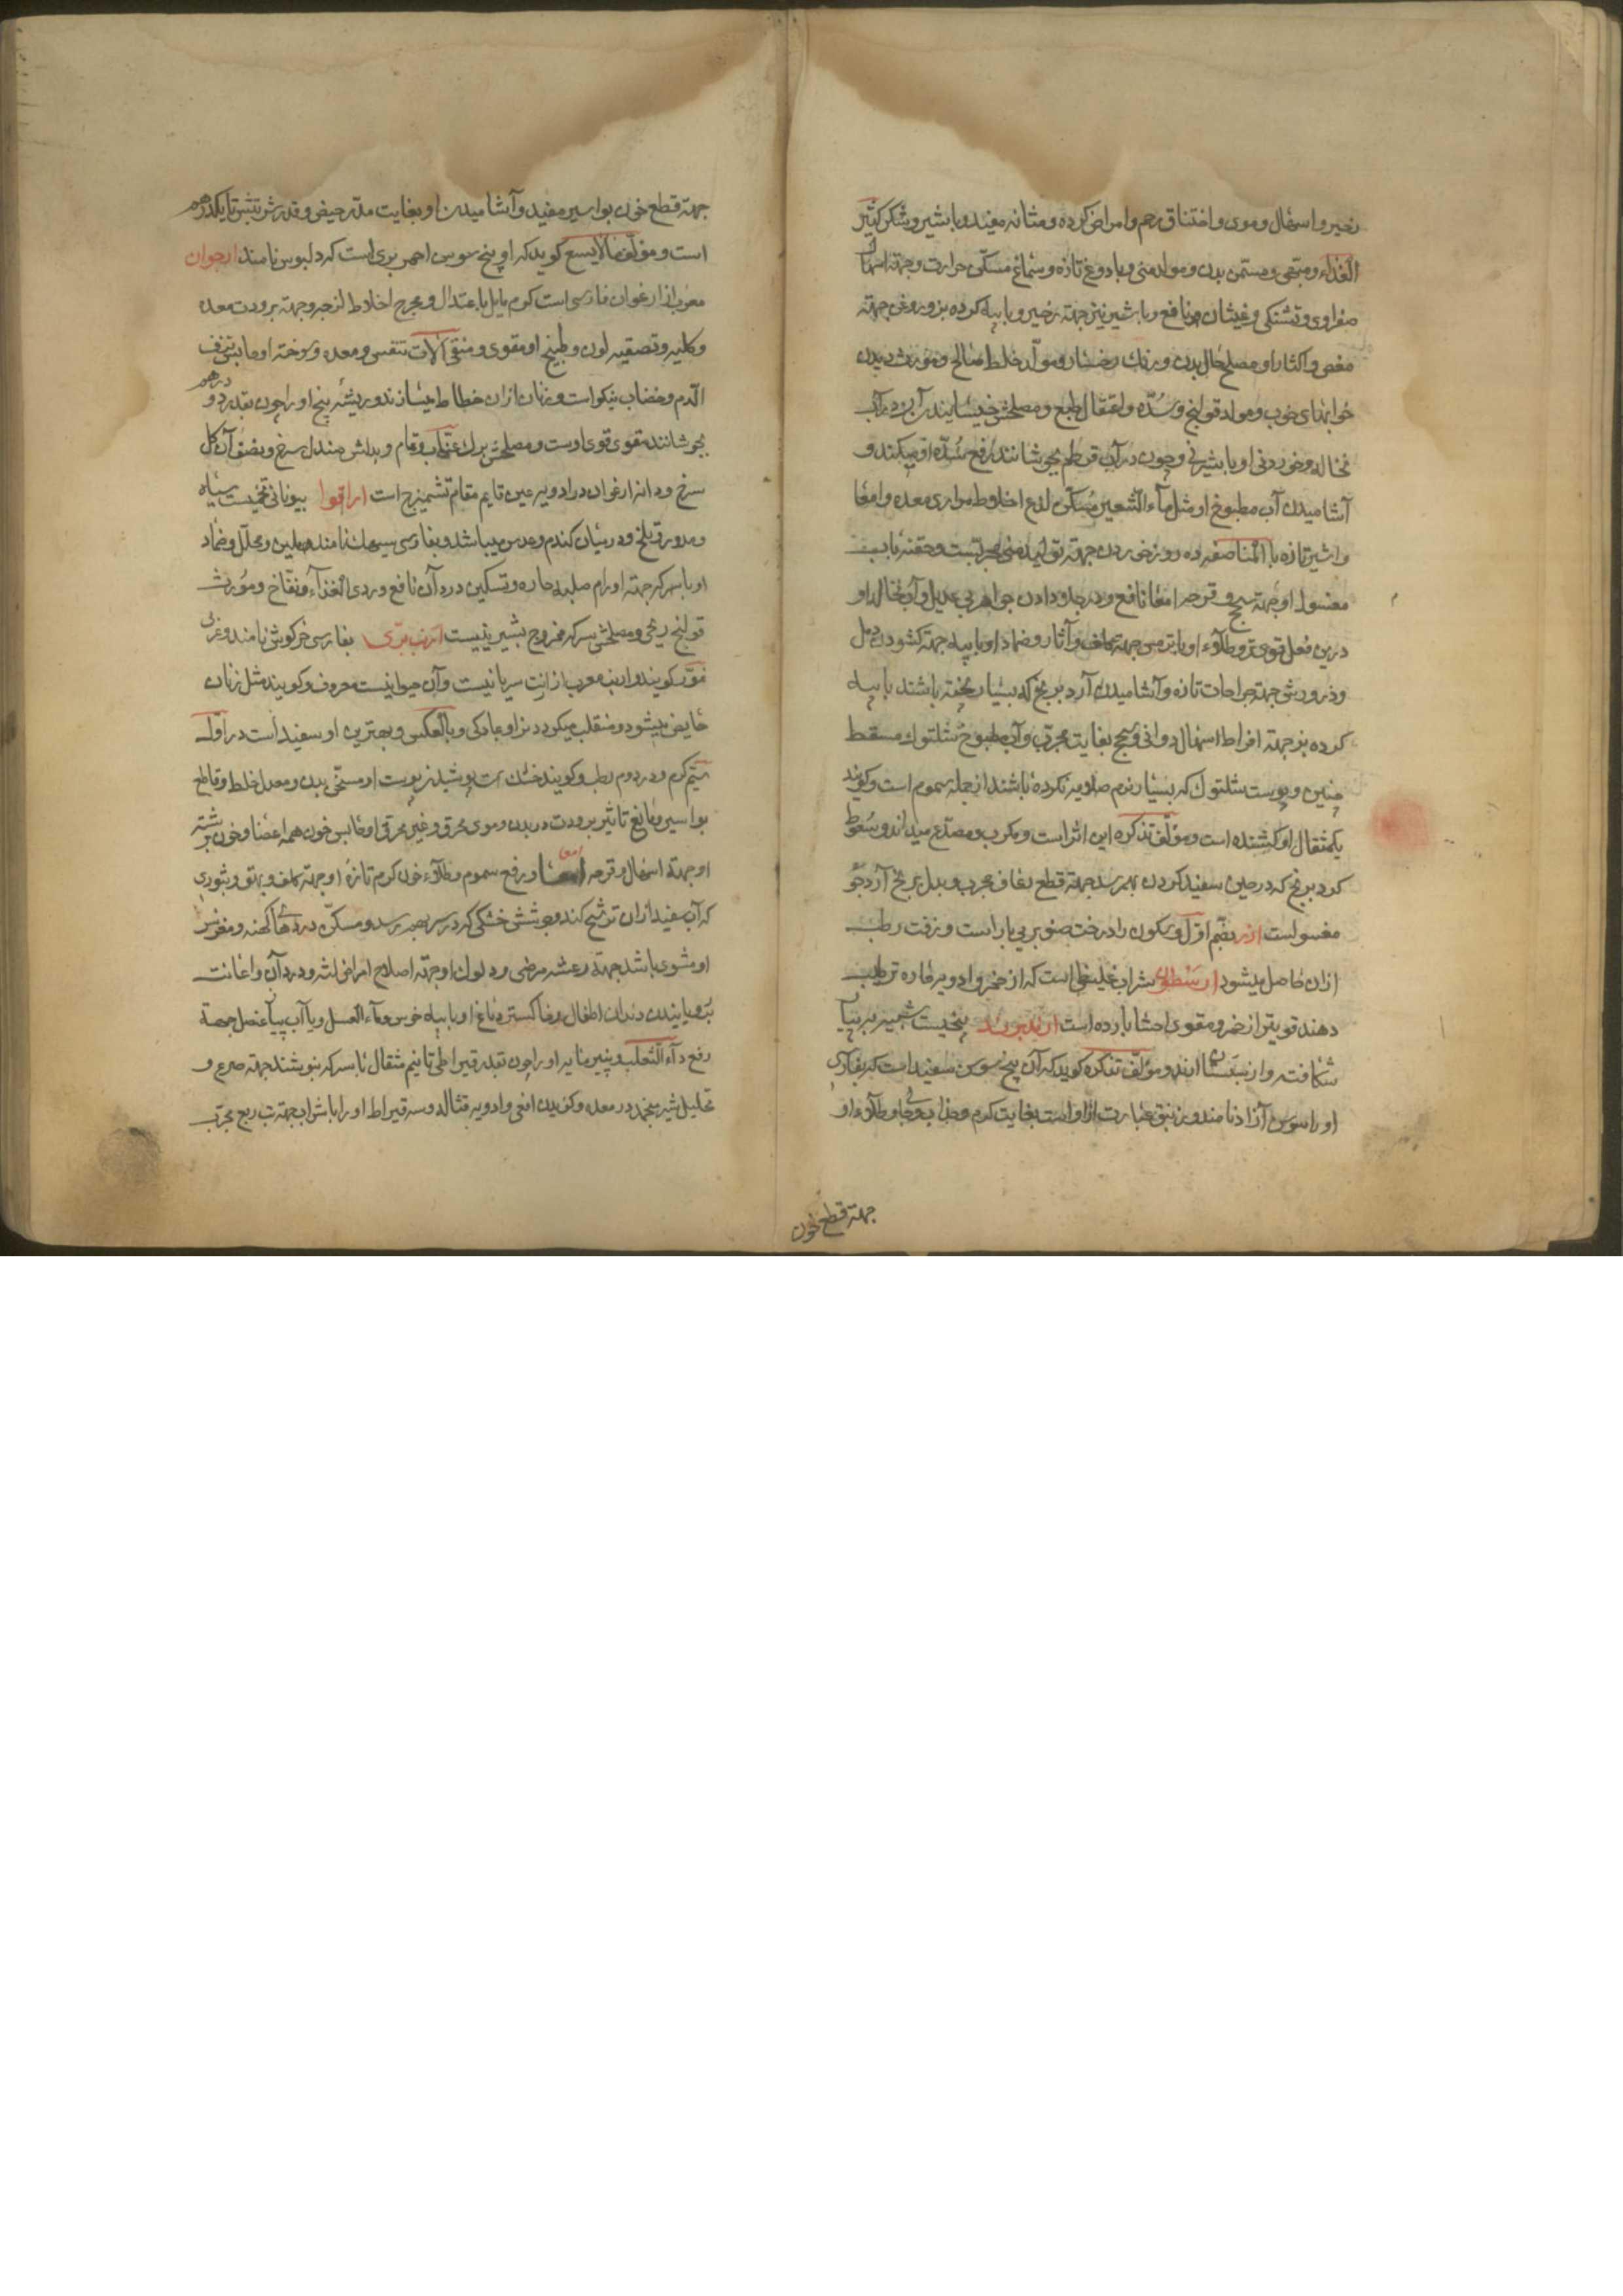 زحیر و اسهال دموی و اختناق رحم و امراض کرده و مثانه مفید و با شیر و شکر کثیر
الغذاء و مبهی و مسمن بدن و مولد منی و با دوغ تازه و سماغ مسکن حرارت و جهة اسهال
صفراوی و تشنکی و غثیان نافع و با شیر بز جهة زحیر و با پیه کرده بز و روغن جهة
مغص و اکثار او مصلح حال بدن و رنك رخسار و مولد خلط صالح و مورث دیدن
خوابهای خوب و مولد قولنج و سده و اعتقال طبع و مصلحش خیسانیدن آن در آب
نخاله و خوردن او با شیرینی و چون در آب قرطم بجوشانند رفع سده او میکند و
آشامیدن آب مطبوخ او مثل ماء الشعیر مسکن لذع اخلاط مراری معده و امعا
و با شیر تازه بالمناصفه ده روز خوردن جهة تولید منی مجربست و حقنه باب
مغسول او جهة سحج و قرحه امعا نافع و در جلا دادن جواهر بی عدیل و آب نخاله او
درین فعل قوی تر و طلاء او با ترمس جهة کلف و آثار و ضماد او با پیه جهة کشودن دمل
و ذرورش جهة جراحات تازه و آشامیدن آرد برنج که بسیار پخته باشند با پیه
کرده بز جهة افراط اسهال دوائی و سحج بغایت مجرب و آب مطبوخ شلتوك مسقط
جنین و پوست شلتوك که بسیار نرم صلایه نکرده باشند از جمله سموم است و کویند
یکمثقال او کشنده است و مؤلف تذکره این اثر است و مکرب و مصدع میداند و سعوط
کرد برنج که در حین سفید کردن بهم رسد جهة قطع رعاف مجرب و بدل برنج آرد جو
مغسولست ارز بضم اول و سکون را درخت صنوبر بی بار است و زفت رطب
ازان حاصل میشود ارسطون شراب غلیظی است که از خمر و ادویه حاره ترتیب
دهند قویتر از خمر و مقوی احشا بارده است ارندبرند بیخیست شبیه به پیاز
شکافته و از سیستان آرند و مؤلف تذکره کوید که آن بیخ سوسن سفید است که بفارسی
او را سوسن آزاد نامند و زنبق عبارت ازاوست بغایت کرم و جذاب و جالی و طلاء او
جهة قطع خون
جهة قطع خون بواسیر مفید و آشامیدن او بغایت مدر حیض و قدر شربتش تا یکدرهم
است و مؤلف مالایسع کوید که او بیخ سوسن احمر بری است که دلبوس نامند ارجوان
معرب از ارغوان فارسی است کرم مایل باعتدال و مخرج اخلاط لزجه و جهة برودت معده
و کلیه و تصفیه لون و طبیخ او مقوی و منقی آلات تنفس و معده و سوخته او حابس نزف
الدم و خضاب نیکو است و زنان ازان خطاط میسازند و ریشه بیخ او را چون بقدر دو درهم
بجوشانند مقوی قوی اوست و مصلحش برك عناب و قام و بدلش صندل سرخ و نصف آن کل
سرخ و دانه ارغوان در ادویه عین قایم مقام تشمیزج است اراقوا بیونانی تخمیست سیاه
و مدور و تلخ و درمیان کندم و عدس میباشد و بفارسی سیهك نامند و ملین و محلل و ضماد
او با سرکه جهة اورام صلبه حاره و تسکین درد آن نافع و ردی الغذاء و نفاخ و مورث
قولنج ریحی و مصلحش سرکه ممزوج بشیرینیست ارنب بری بفارسی خرکوش نامند و عربی
خزز کویند و ارنب معرب از ارنبت سریانیست و آن حیوانیست معروف و کویند مثل زنان
حایض میشود و منقلب میکردد نر او بمادکی و بالعکس و بهترین او سفید است در اول
سیم کرم و در دوم رطب و کویند خشك است پوشیدن پوست او مسخن بدن و معدل خلط و قاطع
بواسیر و مانع تاثیر برودت در بدن و موی محرق و غیر محرق او حابس خون همه اعضا و خون برشته
او جهة اسهال و قرحه امعا و رفع سموم و طلاء خون کرم تازه او جهة کلف و بهق و بثوری
که آب سفید ازان ترشح کند و جوشش خشکی که در سر بهم رسد و مسکن دردهای کهنه و مغز سر
او مشوی باشد جهة رعشه مرضی و دلوك او جهة اصلاح امراض لثه و درد آن و اعانت
برویانیدن دندان اطفال و خاکستر دماغ او با پیه خرس و ماء العسل و یا آب پیاز عنصل جهة
رفع داء الثعلب و پنیر مایه او را چون بقدر قیراطی تا نیم مثقال با سرکه بنوشند جهة صرع و
تحلیل شیر منجمد در معده و کزیدن افعی و ادویه قتاله و سه قیراط او را با شراب جهة تب ربع مجرب